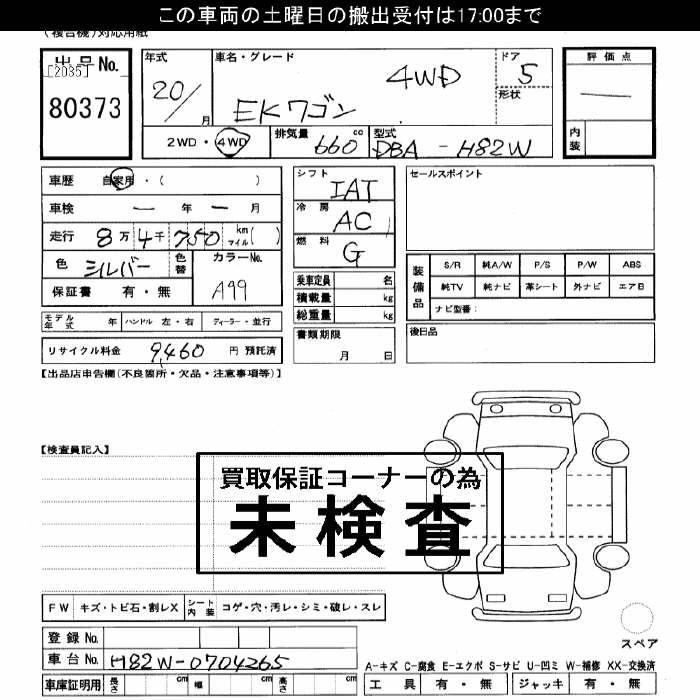 この車両の土曜日の搬出受付は17:00まで
(複合機)対応用紙
出品No.
[2035]
80373
年式
20/
月
車名・グレード
4WD
EKワゴン
ドア
5
形状
評価点
内装
2WD・4WD
排気量
660
cc
型式
DBA - H82W
車歴 自家用・( )
車検 ー 年 ー 月
走行 8万 4千 750 km マイル( )
色 シルバー 色替
カラーNo.
A99
保証書 有・無
モデル年式 年 ハンドル 左・右 ディーラー・並行
リサイクル料金 9,460 円 預託済
シフト
IAT
冷房
AC
燃料
G
乗車定員 名
積載量 kg
総重量 kg
書類期限
月 日
セールスポイント
装備品
S/R 純A/W P/S P/W ABS
純TV 純ナビ 革シート 外ナビ エアB
ナビ型番:
後日品
【出品店申告欄(不良箇所・欠品・注意事項等)】
【検査員記入】
買取保証コーナーの為
未検査
FW キズ・トビ石・割レX シート内装 コゲ・穴・汚レ・シミ・破レ・スレ
登録No.
車台No. H82W-0704265
車庫証明用 長さ cm 幅 cm 高さ cm
スペア
A-キズ C-腐食 E-エクボ S-サビ U-凹ミ W-補修 XX-交換済
工具 有・無 ジャッキ 有・無